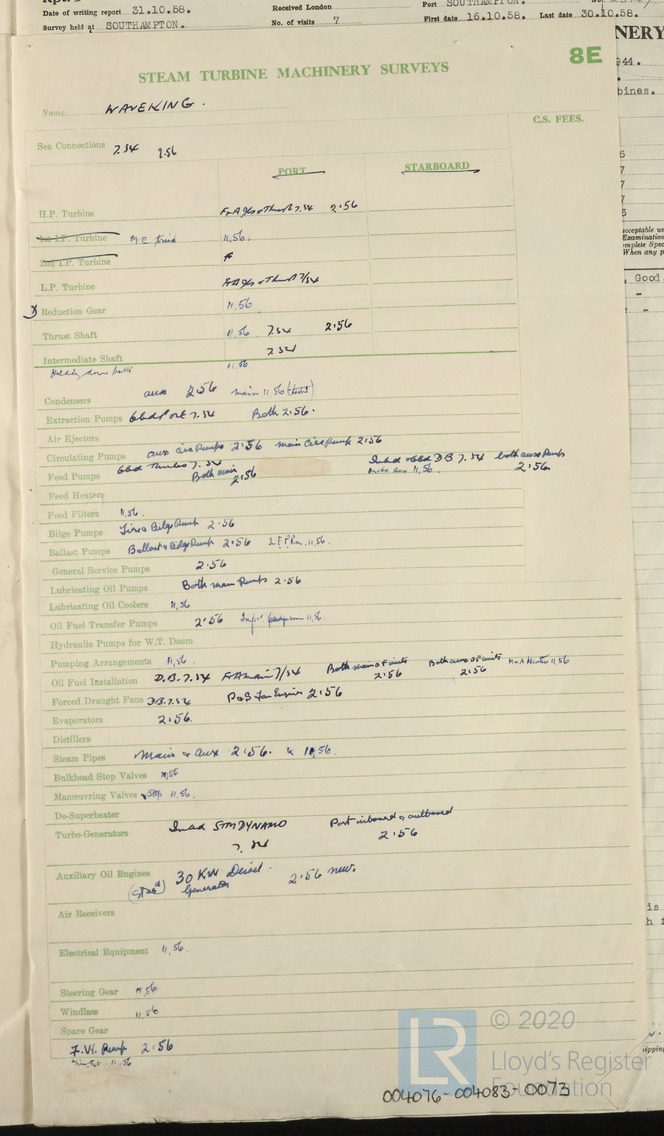 Date of writing report 31.10.58. Received London Port SOUTHAMPTON. No.
Survey held at SOUTHAMPTON. No. of visits 7 First date 16.10.58. Last date 30.10.58.
NERY
944.
bines.
8E
STEAM TURBINE MACHINERY SURVEYS
Name WAVEKING.
C.S. FEES.
Sea Connections 7.54 2.56
PORT STARBOARD
H.P. Turbine 7.54 2.56
1st I.P. Turbine 11.56.
2nd I.P. Turbine
L.P. Turbine 7/54
Reduction Gear 11.56
Thrust Shaft 11.56 7.54 2.56
Intermediate Shaft 7.54
Holding down bolts 11.56
Condensers aux 2.56 main 11.56 (tested)
Extraction Pumps Obd Port 7.54 Both 2.56.
Air Ejectors
Circulating Pumps aux circ Pumps 2.56 main Circ Pump 2.56
Feed Pumps Obd Turbo 7.54 Both main 2.56 Inbd & Obd D.B 7.54 both aux Pumps 2.56
11.56.
Feed Heaters
Feed Filters 11.56.
Bilge Pumps Fire & Bilge Pump 2.56
Ballast Pumps Ballast & Bilge Pump 2.56 11.56.
General Service Pumps 2.56
Lubricating Oil Pumps Both main Pumps 2.56
Lubricating Oil Coolers 11.56
Oil Fuel Transfer Pumps 2.56 11.56.
Hydraulic Pumps for W.T. Doors
Pumping Arrangements 11.56.
Oil Fuel Installation D.B. 7.54 7/54 Both main 2.56 Both aux 2.56 11.56
Forced Draught Fans D.B. 7.54 P & S Fan Engines 2.56
Evaporators 2.56.
Distillers
Steam Pipes Main & Aux 2.56. & 11.56.
Bulkhead Stop Valves 11.56
Manœuvring Valves 11.56.
De-Superheater
Turbo-Generators Inbd STM DYNAMO 7.54 Port inboard & outboard 2.56
Auxiliary Oil Engines 30 KW Deisel Generator 2.56 new.
(Starbd)
Air Receivers
Electrical Equipment 11.56.
Steering Gear 11.56
Windlass 11.56
Spare Gear
F.W. Pump 2.56
11.56
5
7
7
7
5
Examination
When any p
Good
© 2020
LR Lloyd's Register
Foundation
004076-004083-0073